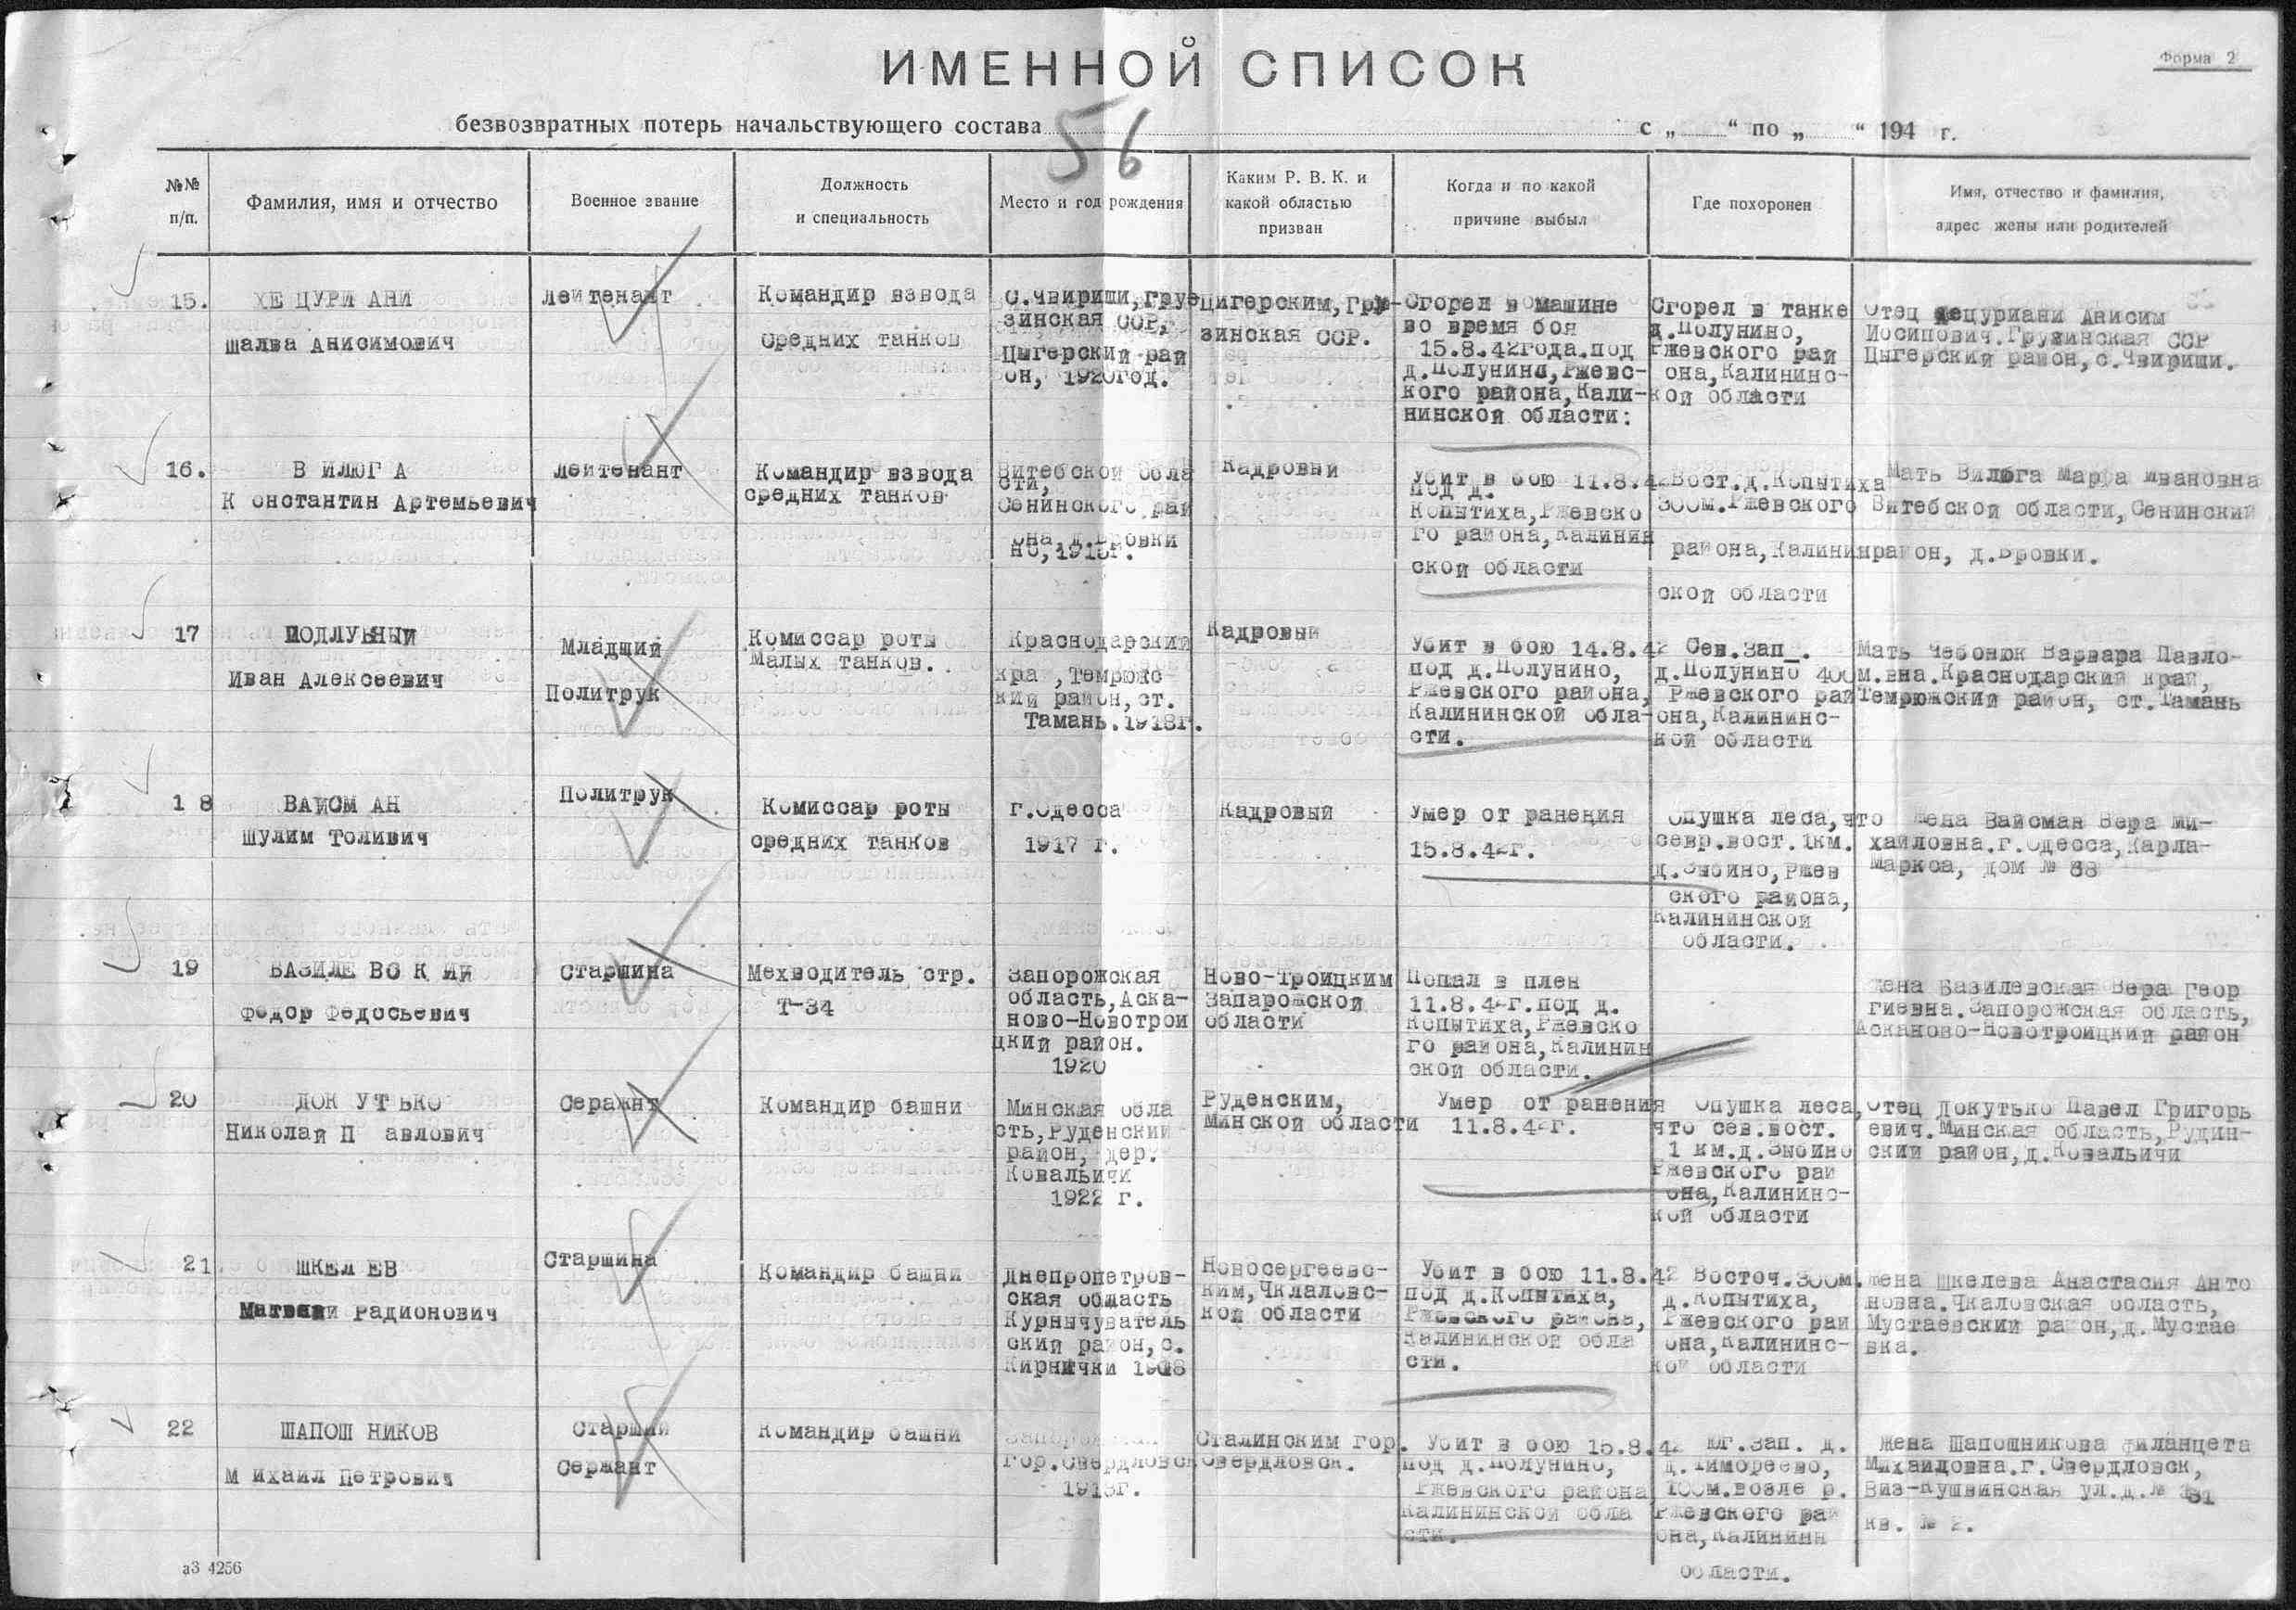 ИМЕННОЙ СПИСОК
Форма 2
безвозвратных потерь начальствующего состава с „ “ по „ “ 194 г.
56
№№ п/п.
Фамилия, имя и отчество
Военное звание
Должность и специальность
Место и год рождения
Каким Р. В. К. и какой областью призван
Когда и по какой причине выбыл
Где похоронен
Имя, отчество и фамилия, адрес жены или родителей
15.
ХЕЦУРИАНИ
Шалва Анисимович
Лейтенант
Командир взвода
Средних танков
с.Чвириши, Гру
зинская ССР,
Цыгерский рай
он, 1920год.
Цигерским, Гру-
зинская ССР.
Сгорел в машине
во время боя
15.8.42года.под
д.Полунино, Ржевс-
кого района, Кали-
нинской области:
Сгорел в танке
д.Полунино,
Ржевского рай
она, Калининс-
кой области
Отец Хецуриани Анисим
Иосипович.Грузинская ССР
Цыгерский район, с.Чвириши.
16.
ВИЛЮГА
Константин Артемьевич
Лейтенант
Командир взвода
средних танков
Витебской обла
сти,
Сенинского рай
она, д.Бровки
но, 1918г.
Кадровый
Убит в бою 11.8.42
под д.
Копытиха, Ржевско
го района, Калинин
ской области
Вост.д.Копытиха
300м.Ржевского
района, Калинин
ской области
Мать Вилюга Марфа Ивановна
Витебской области, Сенинский
район, д.Бровки.
17
ПОДЛУБНЫЙ
Иван Алексеевич
Младший
Политрук
Комиссар роты
Малых танков.
Краснодарский
кра , Темрюкс
кий район, ст.
Тамань.1918г.
Кадровый
Убит в бою 14.8.42
под д.Полунино,
Ржевского района,
Калининской обла-
сти.
Сев.Зап_.
д.Полунино 400м.
Ржевского рай
она, Калининс-
кой области
Мать Чебонюк Варвара Павло-
вна.Краснодарский край,
Темрюжский район, ст.Тамань
18
ВАЙСМАН
Шулим Толивич
Политрук
Комиссар роты
средних танков
г.Одесса
1917 г.
Кадровый
Умер от ранения
15.8.42г.
Опушка леса, что
севр.вост.1км.
д.Зыбино, Ржев
ского района,
Калининской
области.
Жена Вайсман Вера Ми-
хайловна.г.Одесса, Карла-
Маркса, дом № 68
19
БАЗИЛЕВСКИЙ
Федор Федосьевич
Старшина
Мехводитель стр.
Т-34
Запорожская
область, Аска-
ново-Новотрои
цкий район.
1920
Ново-Троицким
Запарожской
области
Попал в плен
11.8.42г.под д.
Копытиха, Ржевско
го района, Калинин
ской области.
Жена Базилевская Вера Геор
гиевна.Запорожская область,
Асканово-Новотроицкий район
20
ДОКУТЬКО
Николай Павлович
Сержант
Командир башни
Минская обла
сть, Руденский
район, дер.
Ковальичи
1922 г.
Руденским,
Минской области
Умер от ранения
11.8.42г.
Опушка леса,
что сев.вост.
1 км.д.Зыбино
Ржевского рай
она, Калининс-
кой области
Отец Докутько Павел Григорь
евич.Минская область, Рудин-
ский район, д.Ковальичи
21
ШКЕЛЕВ
Матвей Радионович
Старшина
Командир башни
Днепропетров-
ская область
Курнычуватель
ский район, с.
Кирнички 1908
Новосергеевс-
ким, Чкаловс-
кой области
Убит в бою 11.8.42
под д.Копытиха,
Ржевского района,
Калининской обла
сти.
Восточ.300м.
д.Копытиха,
Ржевского рай
она, Калининс-
кой области
Жена Шкелева Анастасия Анто
новна.Чкаловская область,
Мустаевский район, д.Мустае
вка.
22
ШАПОШНИКОВ
Михаил Петрович
Старший
Сержант
Командир башни
гор.Свердловск
1913г.
Сталинским гор.
Свердловск.
Убит в бою 15.8.42
под д.Полунино,
Ржевского района
Калининской обла
сти.
Юг.Зап. д.
д.Тимофеево,
100м.возле р.
Ржевского рай
она, Калинин
области.
Жена Шапошникова
Михайловна.г.Свердловск,
Виз-Кушвинская ул.д.№
кв. № 2.
аЗ 4256